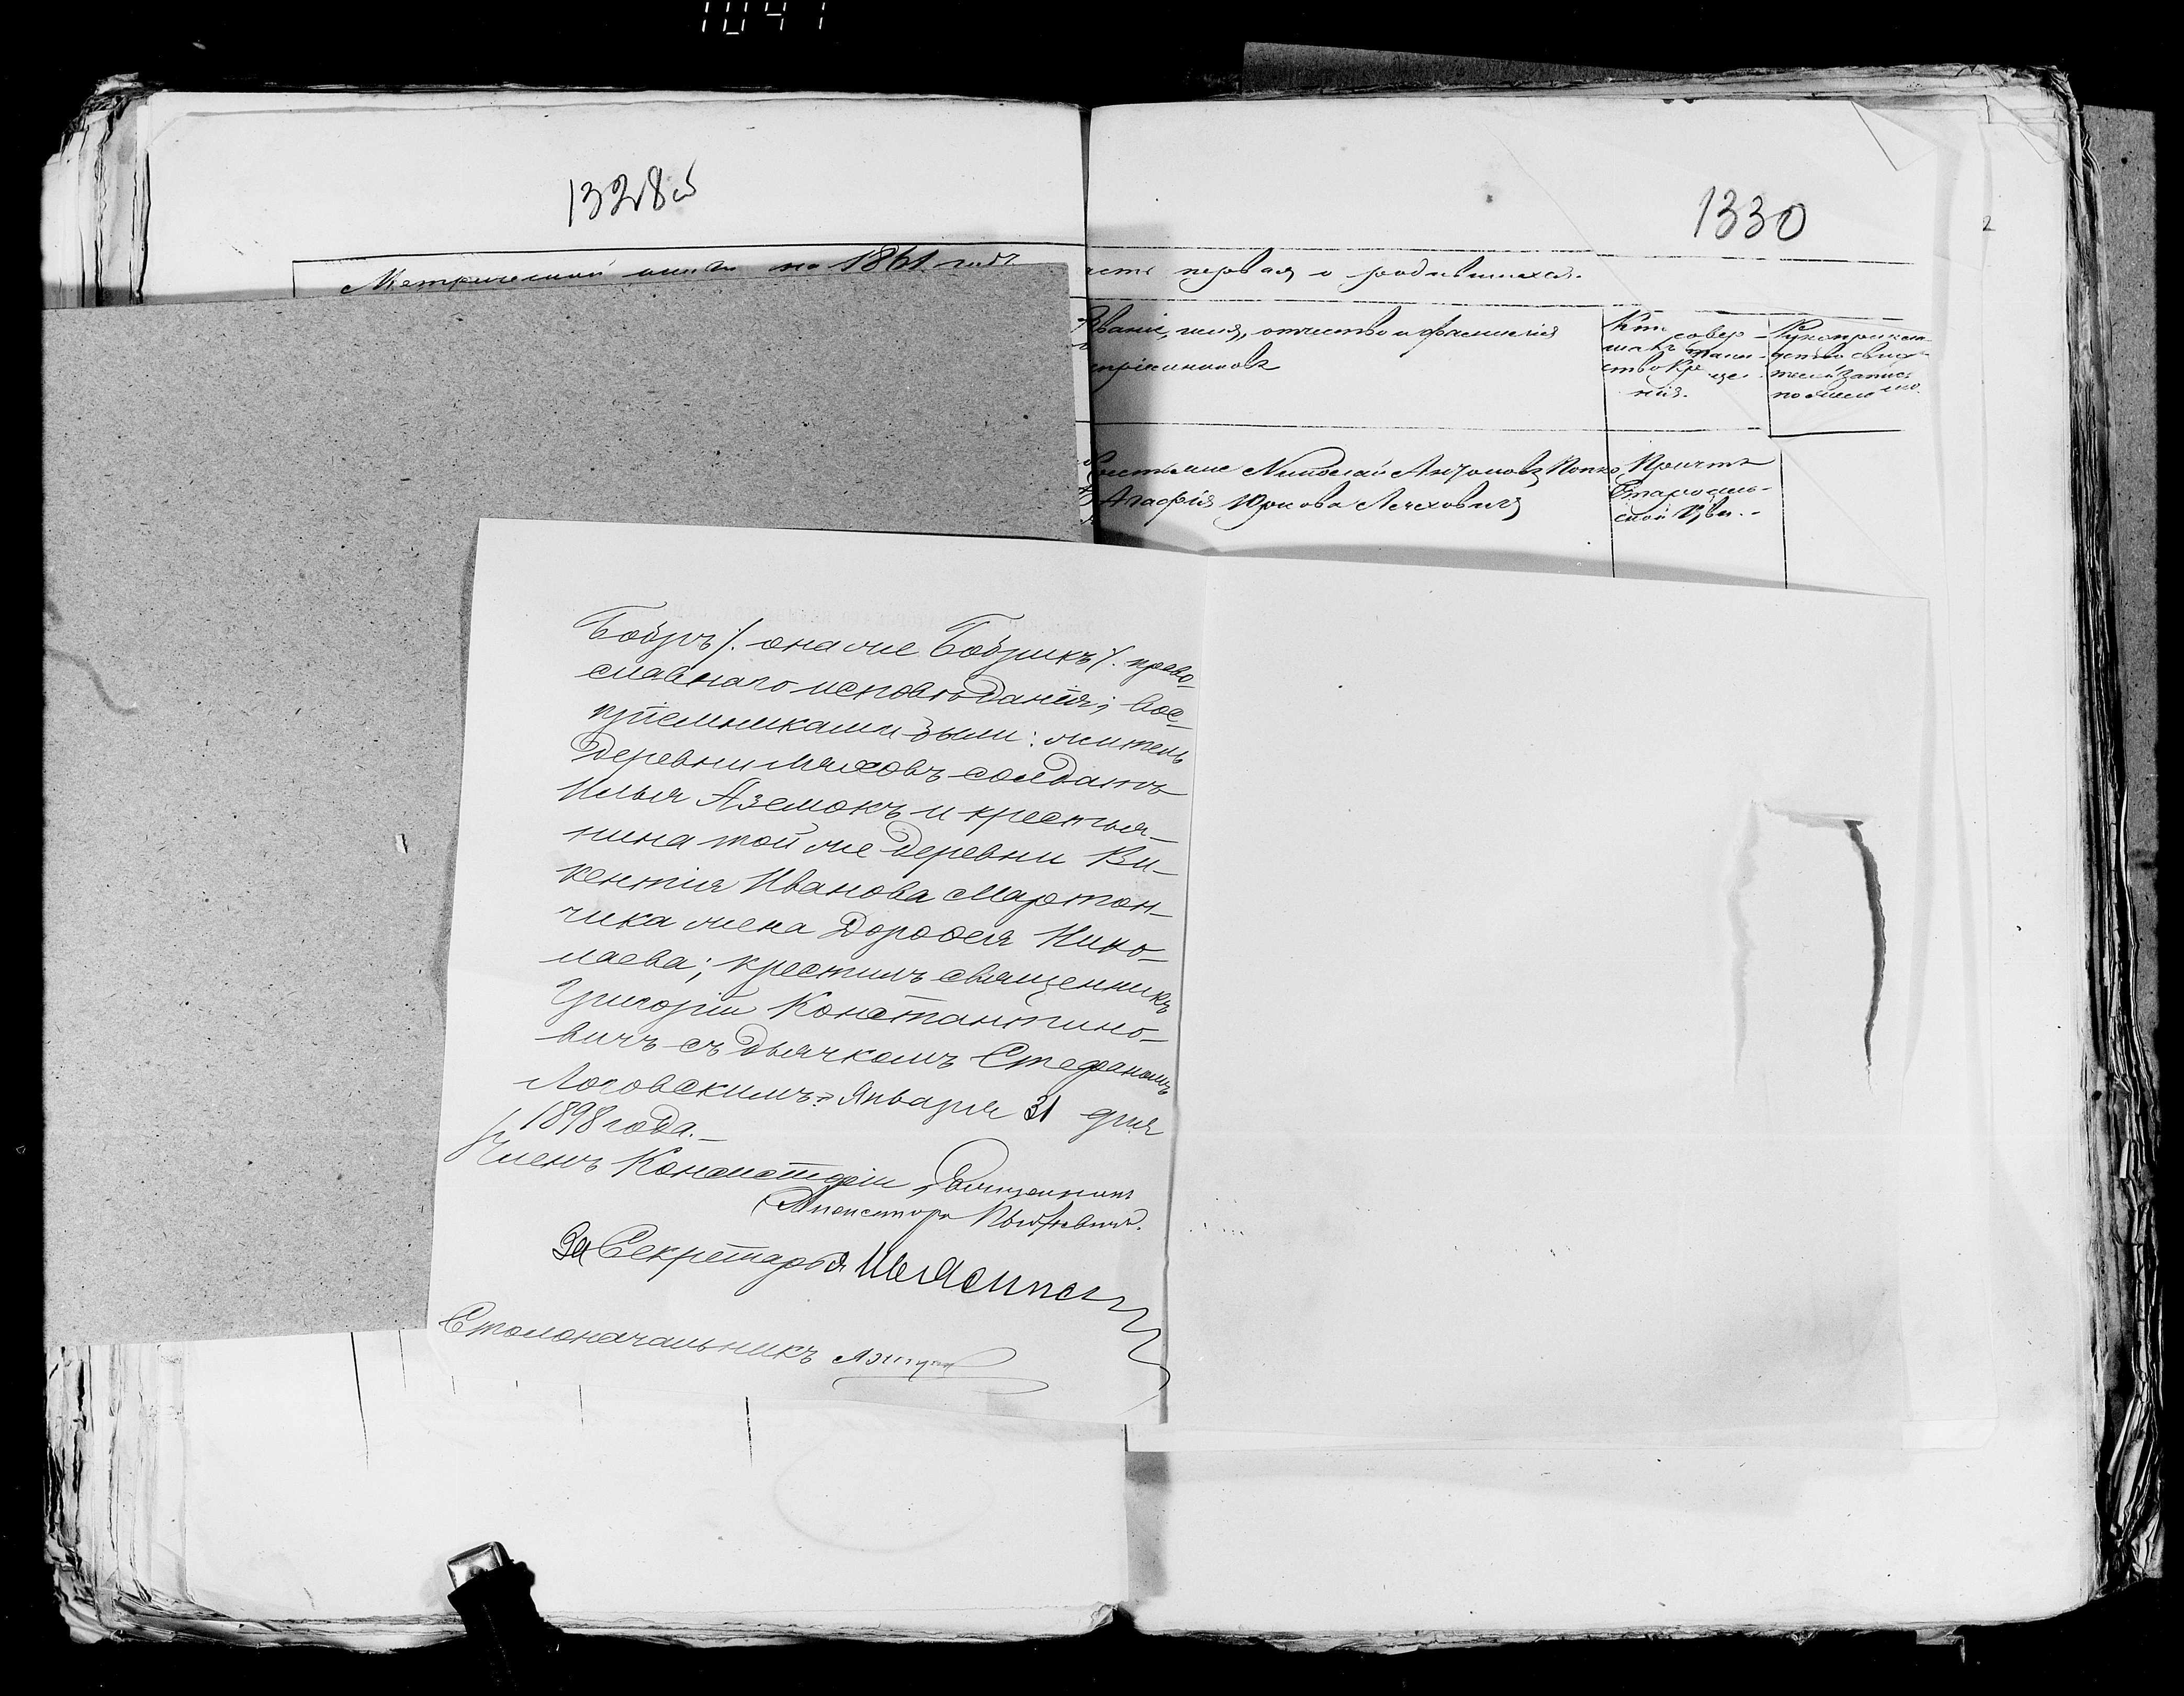 1041
1328об
Метрической книги на 1861 годъ
1330
2
часть первая о родившихся.
Званіе, имя, отчество и фамилія
воспріемниковъ
Кто совер-
шалъ таин-
ство кре
ще-
нія.
Рукоприклад
ство свидѣ-
телей записи
по желанію.
Крестьяне Николай Антоновъ Попко
Агафія Юркова
Причтъ
ской Цркви.-
Бобръ /. она же Бобрикъ /. право-
славнаго исповѣданія; вос-
пріемниками были: житель
деревни Мяховъ солдатъ
Илья Аземокъ и крестья-
нина той же деревни Ви-
кентія Иванова Мартон-
чика жена Дорофея Нико-
лаева; крестилъ священникъ
Григорій Константино-
вичъ съ дьячкомъ Стефаномъ
Логовскимъ. Января 31 дня
1898 года.-
Членъ Консисторіи, Священникъ
За Секретаря
Столоначальникъ